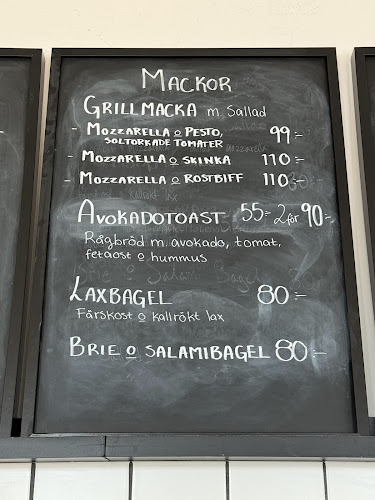 MACKOR
GRILLMACKA m. Sallad
- MOZZARELLA o PESTO, 99:-
SOLTORKADE TOMATER
- MOZZARELLA o SKINKA 110:-
- MOZZARELLA o ROSTBIFF 110:-
AVOKADOTOAST 55:- 2 för 90:-
Rågbröd m. avokado, tomat,
fetaost o hummus
LAXBAGEL 80:-
Färskost o kallrökt lax
BRIE o SALAMIBAGEL 80:-